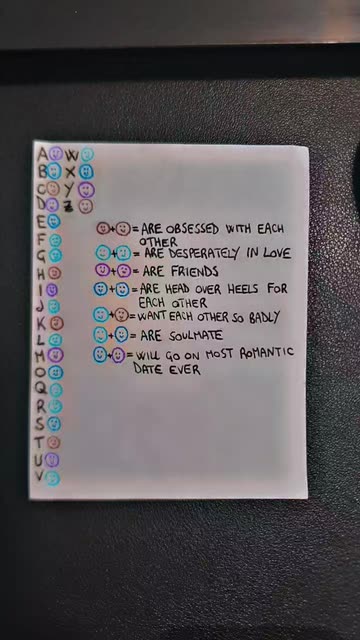 A W
B X
C Y
D Z
E
F
G
H
I
J
K
L
M
O
Q
R
S
T
U
V
+ = ARE OBSESSED WITH EACH
OTHER
+ = ARE DESPERATELY IN LOVE
+ = ARE FRIENDS
+ = ARE HEAD OVER HEELS FOR
EACH OTHER
+ = WANT EACH OTHER SO BADLY
+ = ARE SOULMATE
+ = WILL GO ON MOST ROMANTIC
DATE EVER